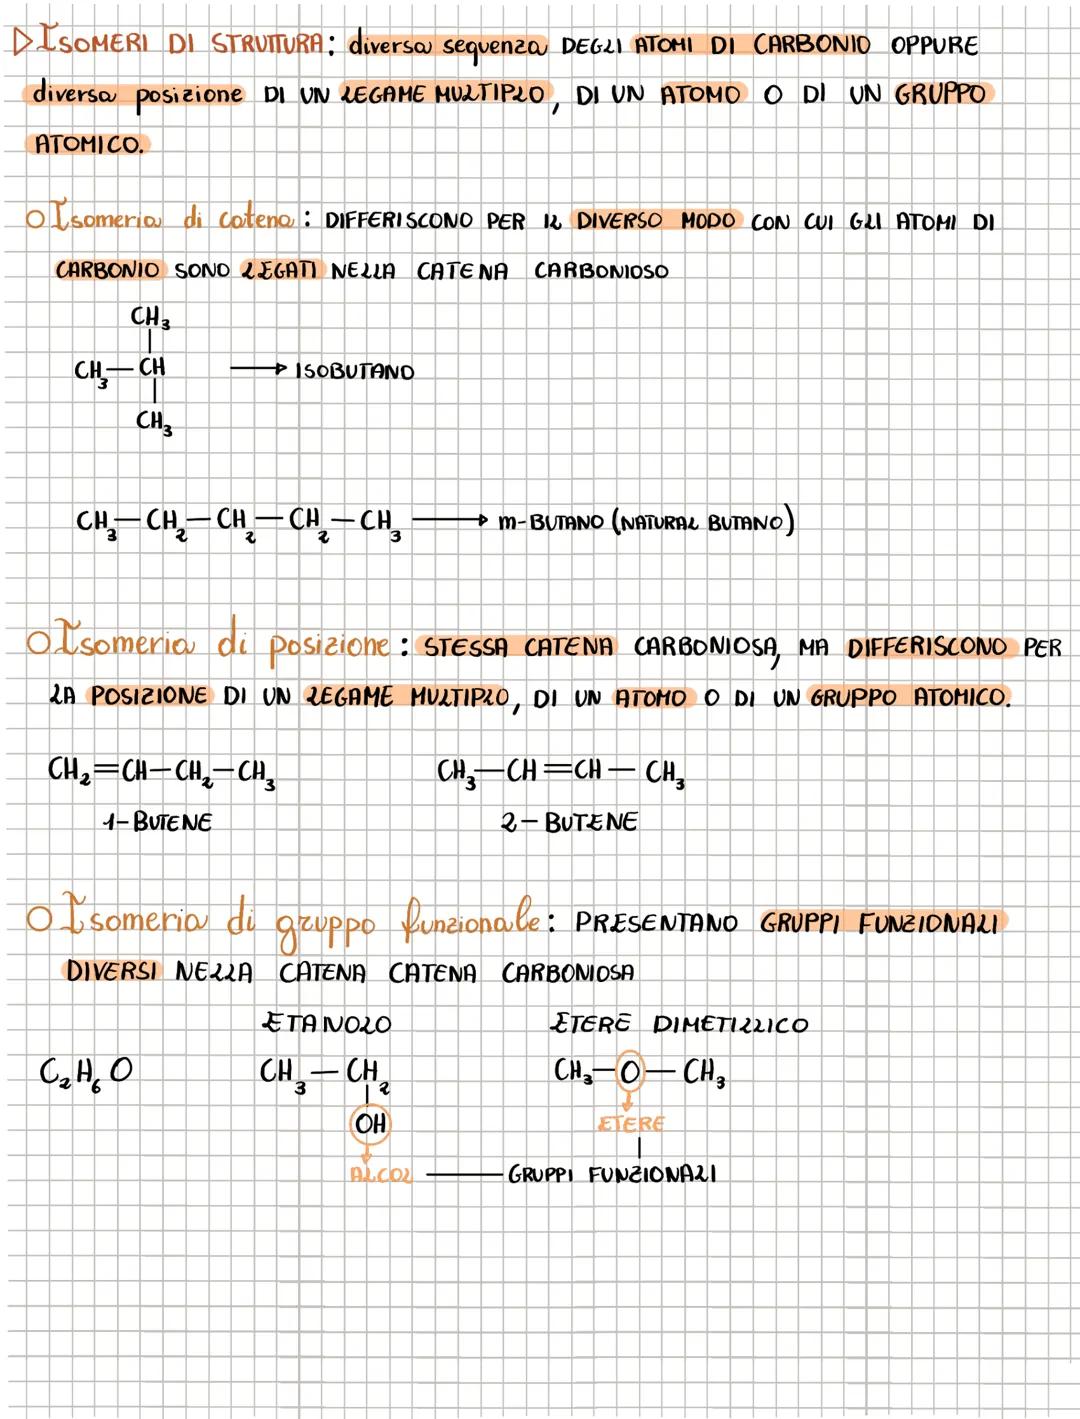 ▷ISOMERI DI STRUTTURA: diversa sequenza DEGLI ATOMI DI CARBONIO OPPURE
diversa posizione DI UN LEGAME MULTIPLO, DI UN ATOMO O DI UN GRUPPO
ATOMICO.
○Isomeria di catena: DIFFERISCONO PER IL DIVERSO MODO CON CUI GLI ATOMI DI
CARBONIO SONO LEGATI NELLA CATENA CARBONIOSO
CH₃
|
CH₃—CH → ISOBUTANO
|
CH₃
CH₃—CH₂—CH₂—CH₂—CH₃ → m-BUTANO (NATURAL BUTANO)
○Isomeria di posizione: STESSA CATENA CARBONIOSA, MA DIFFERISCONO PER
LA POSIZIONE DI UN LEGAME MULTIPLO, DI UN ATOMO O DI UN GRUPPO ATOMICO.
CH₂=CH—CH₂—CH₃ CH₃—CH=CH—CH₃
1-BUTENE 2-BUTENE
○Isomeria di gruppo funzionale: PRESENTANO GRUPPI FUNZIONALI
DIVERSI NELLA CATENA CATENA CARBONIOSA
ETANOLO ETERE DIMETILLICO
C₂H₆O CH₃—CH₂ CH₃—O—CH₃
|
OH ETERE
|
ALCOL — GRUPPI FUNZIONALI